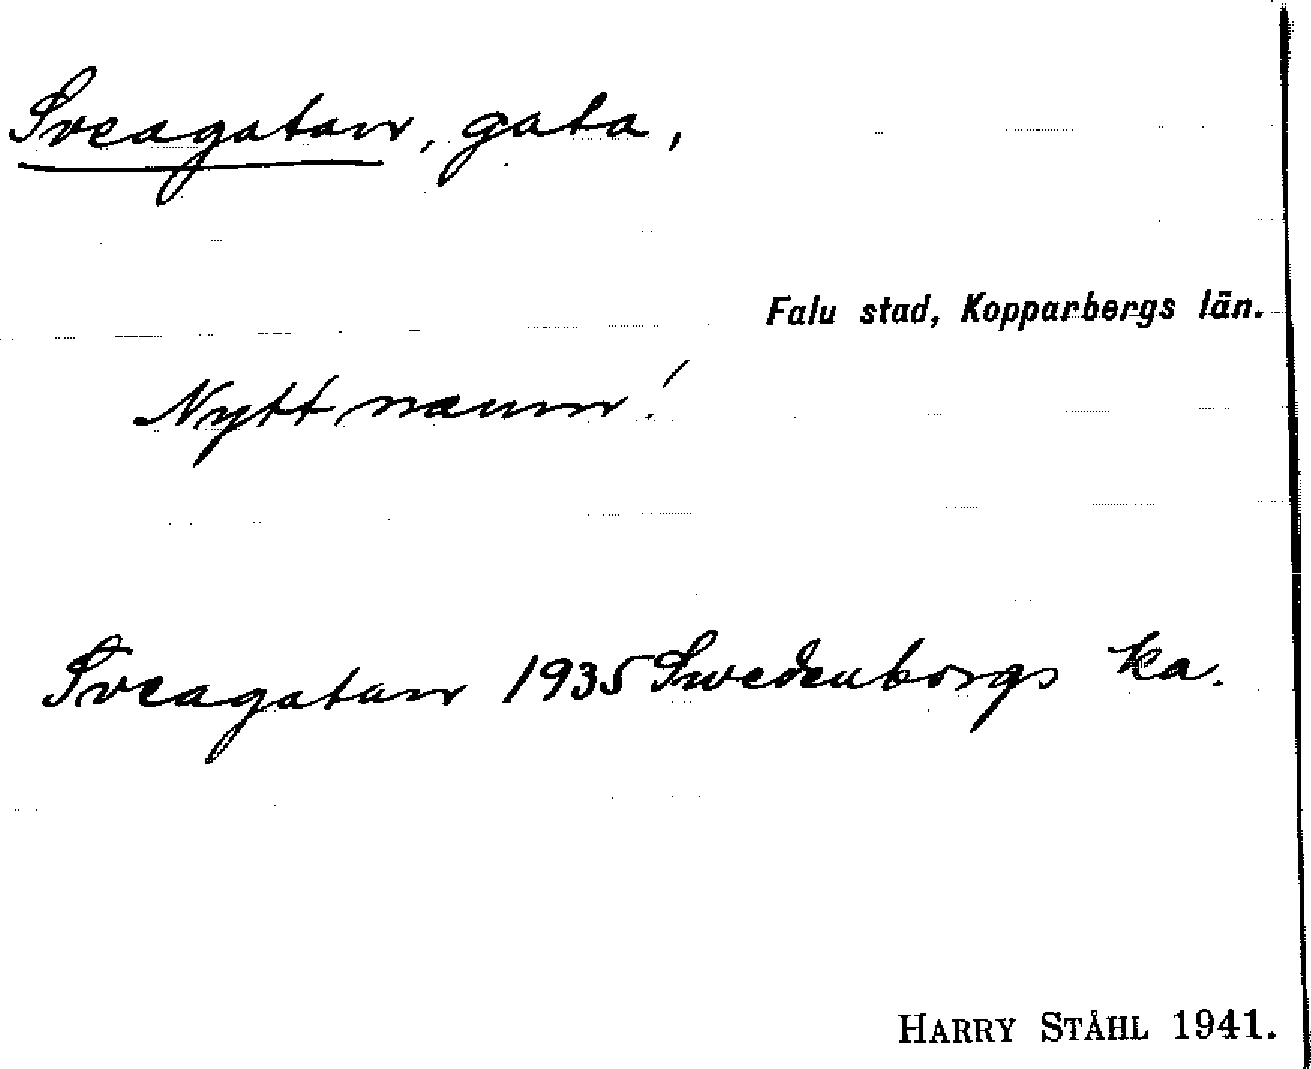 Sveagatan, gata,
Falu stad, Kopparbergs län.
Nytt namn!
Sveagatan 1935 Swedenborgs ka.
HARRY STÅHL 1941.